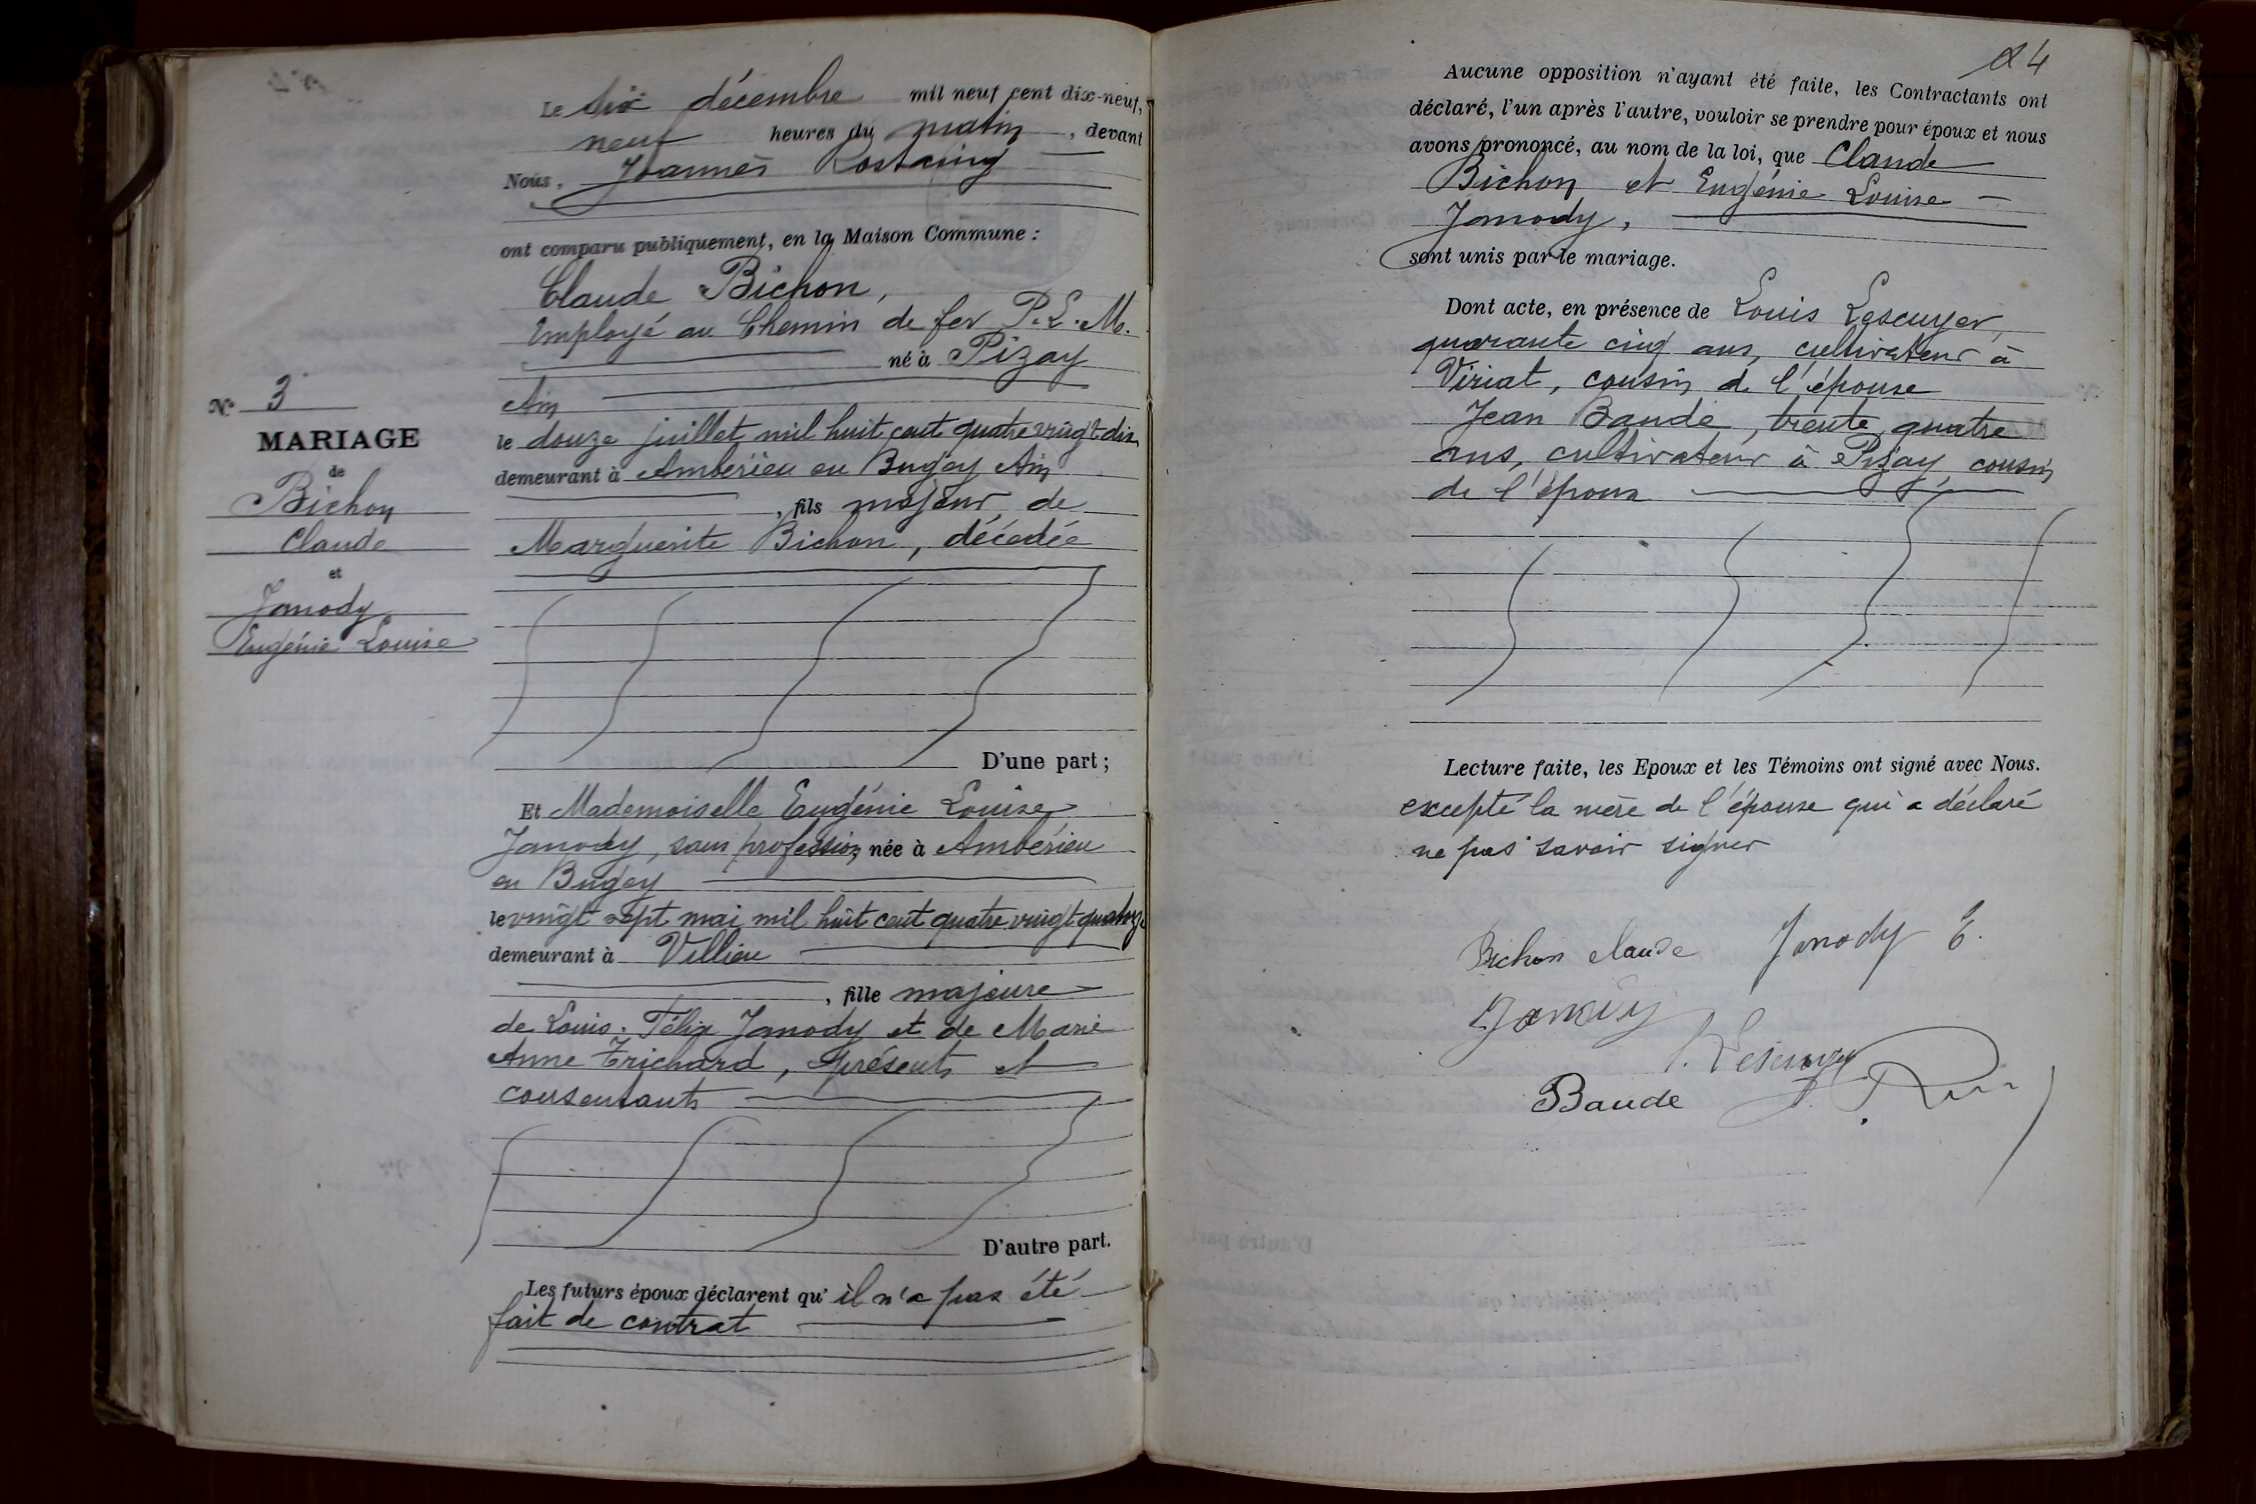 Nº 3
MARIAGE
de
Bichon
Claude
et
Janody
Eugénie Louise
Le six décembre mil neuf cent dix-neuf,
neuf heures du matin, devant
Nous, Joannès Rostaing
ont comparu publiquement, en la Maison Commune :
Claude Bichon,
Employé au Chemin de fer P.L.M.
né à Pizay
Ain
le douze juillet mil huit cent quatre vingt dix
demeurant à Ambérieu en Bugey Ain
, fils majeur de
Marguerite Bichon, décédée
D'une part ;
Et Mademoiselle Eugénie Louise
Janody, sans profession, née à Ambérieu
en Bugey
le vingt sept mai mil huit cent quatre vingt quatorze
demeurant à Villieu
, fille majeure
de Louis Félix Janody et de Marie
Anne Trichard, présents et
consentants
D'autre part.
Les futurs époux déclarent qu' il n'a pas été
fait de contrat
24
Aucune opposition n'ayant été faite, les Contractants ont
déclaré, l'un après l'autre, vouloir se prendre pour époux et nous
avons prononcé, au nom de la loi, que Claude
Bichon et Eugénie Louise
Janody,
sont unis par le mariage.
Dont acte, en présence de Louis Lescuyer,
quarante cinq ans, cultivateur à
Viriat, cousin de l'épouse
Jean Baude, trente quatre
ans, cultivateur à Pizay, cousin
de l'époux
Lecture faite, les Epoux et les Témoins ont signé avec Nous.
excepté la mère de l'épouse qui a déclaré
ne pas savoir signer
Bichon claude Janody E.
Janody
Lescuyer
Baude